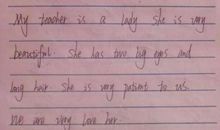 My teacher is a lady she is very
beautiful. She has two big eyes and
long hair. She is very patient to us.
We are very love her.